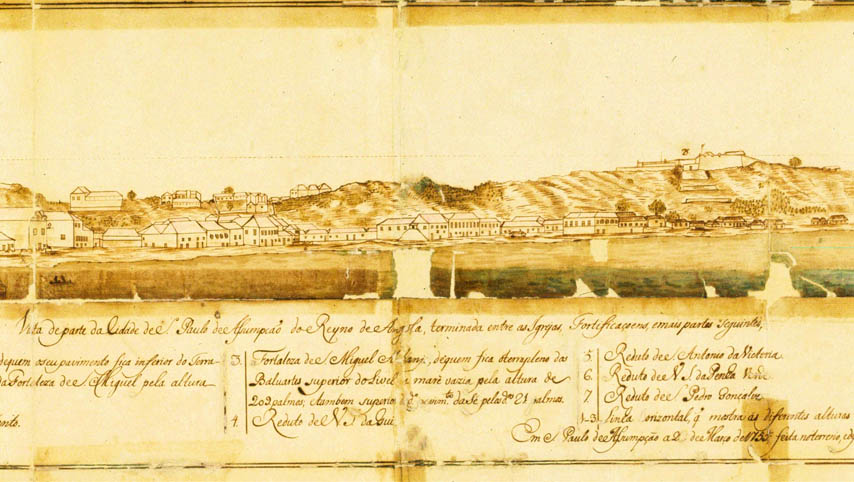 Vista de parte da Cidade de S. Paulo de Assumpção do Reyno de Angola, terminada entre as Igrejas, Fortificaçoens, e mais partes seguintes,
dequem o seu pavimento fica inferior do Terra
da Fortaleza de S. Miguel pela altura
3. Fortaleza de S. Miguel dequem fica o terrapleno dos
Baluartes superior do Livel a maré vazia pela altura de
209 palmos; e tambem superior da Sé pelos 21 palmos.
4. Reduto de N. S. da Guia
5 Reduto de S. Antonio da Victoria
6. Reduto de N. S. da Penha
7 Reduto de S. Pedro Gonçalves
1-3 Linha Orizontal, q̃ mostra as diferentes alturas
Em S. Paulo de Assumpção a 2 de Março de 1755 feita no terreno, e